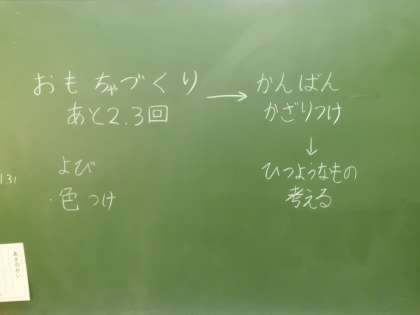 おもちゃづくり → かんばん
あと2.3回
かざりつけ
↓
ひつようなもの
考える
よび
・色つけ